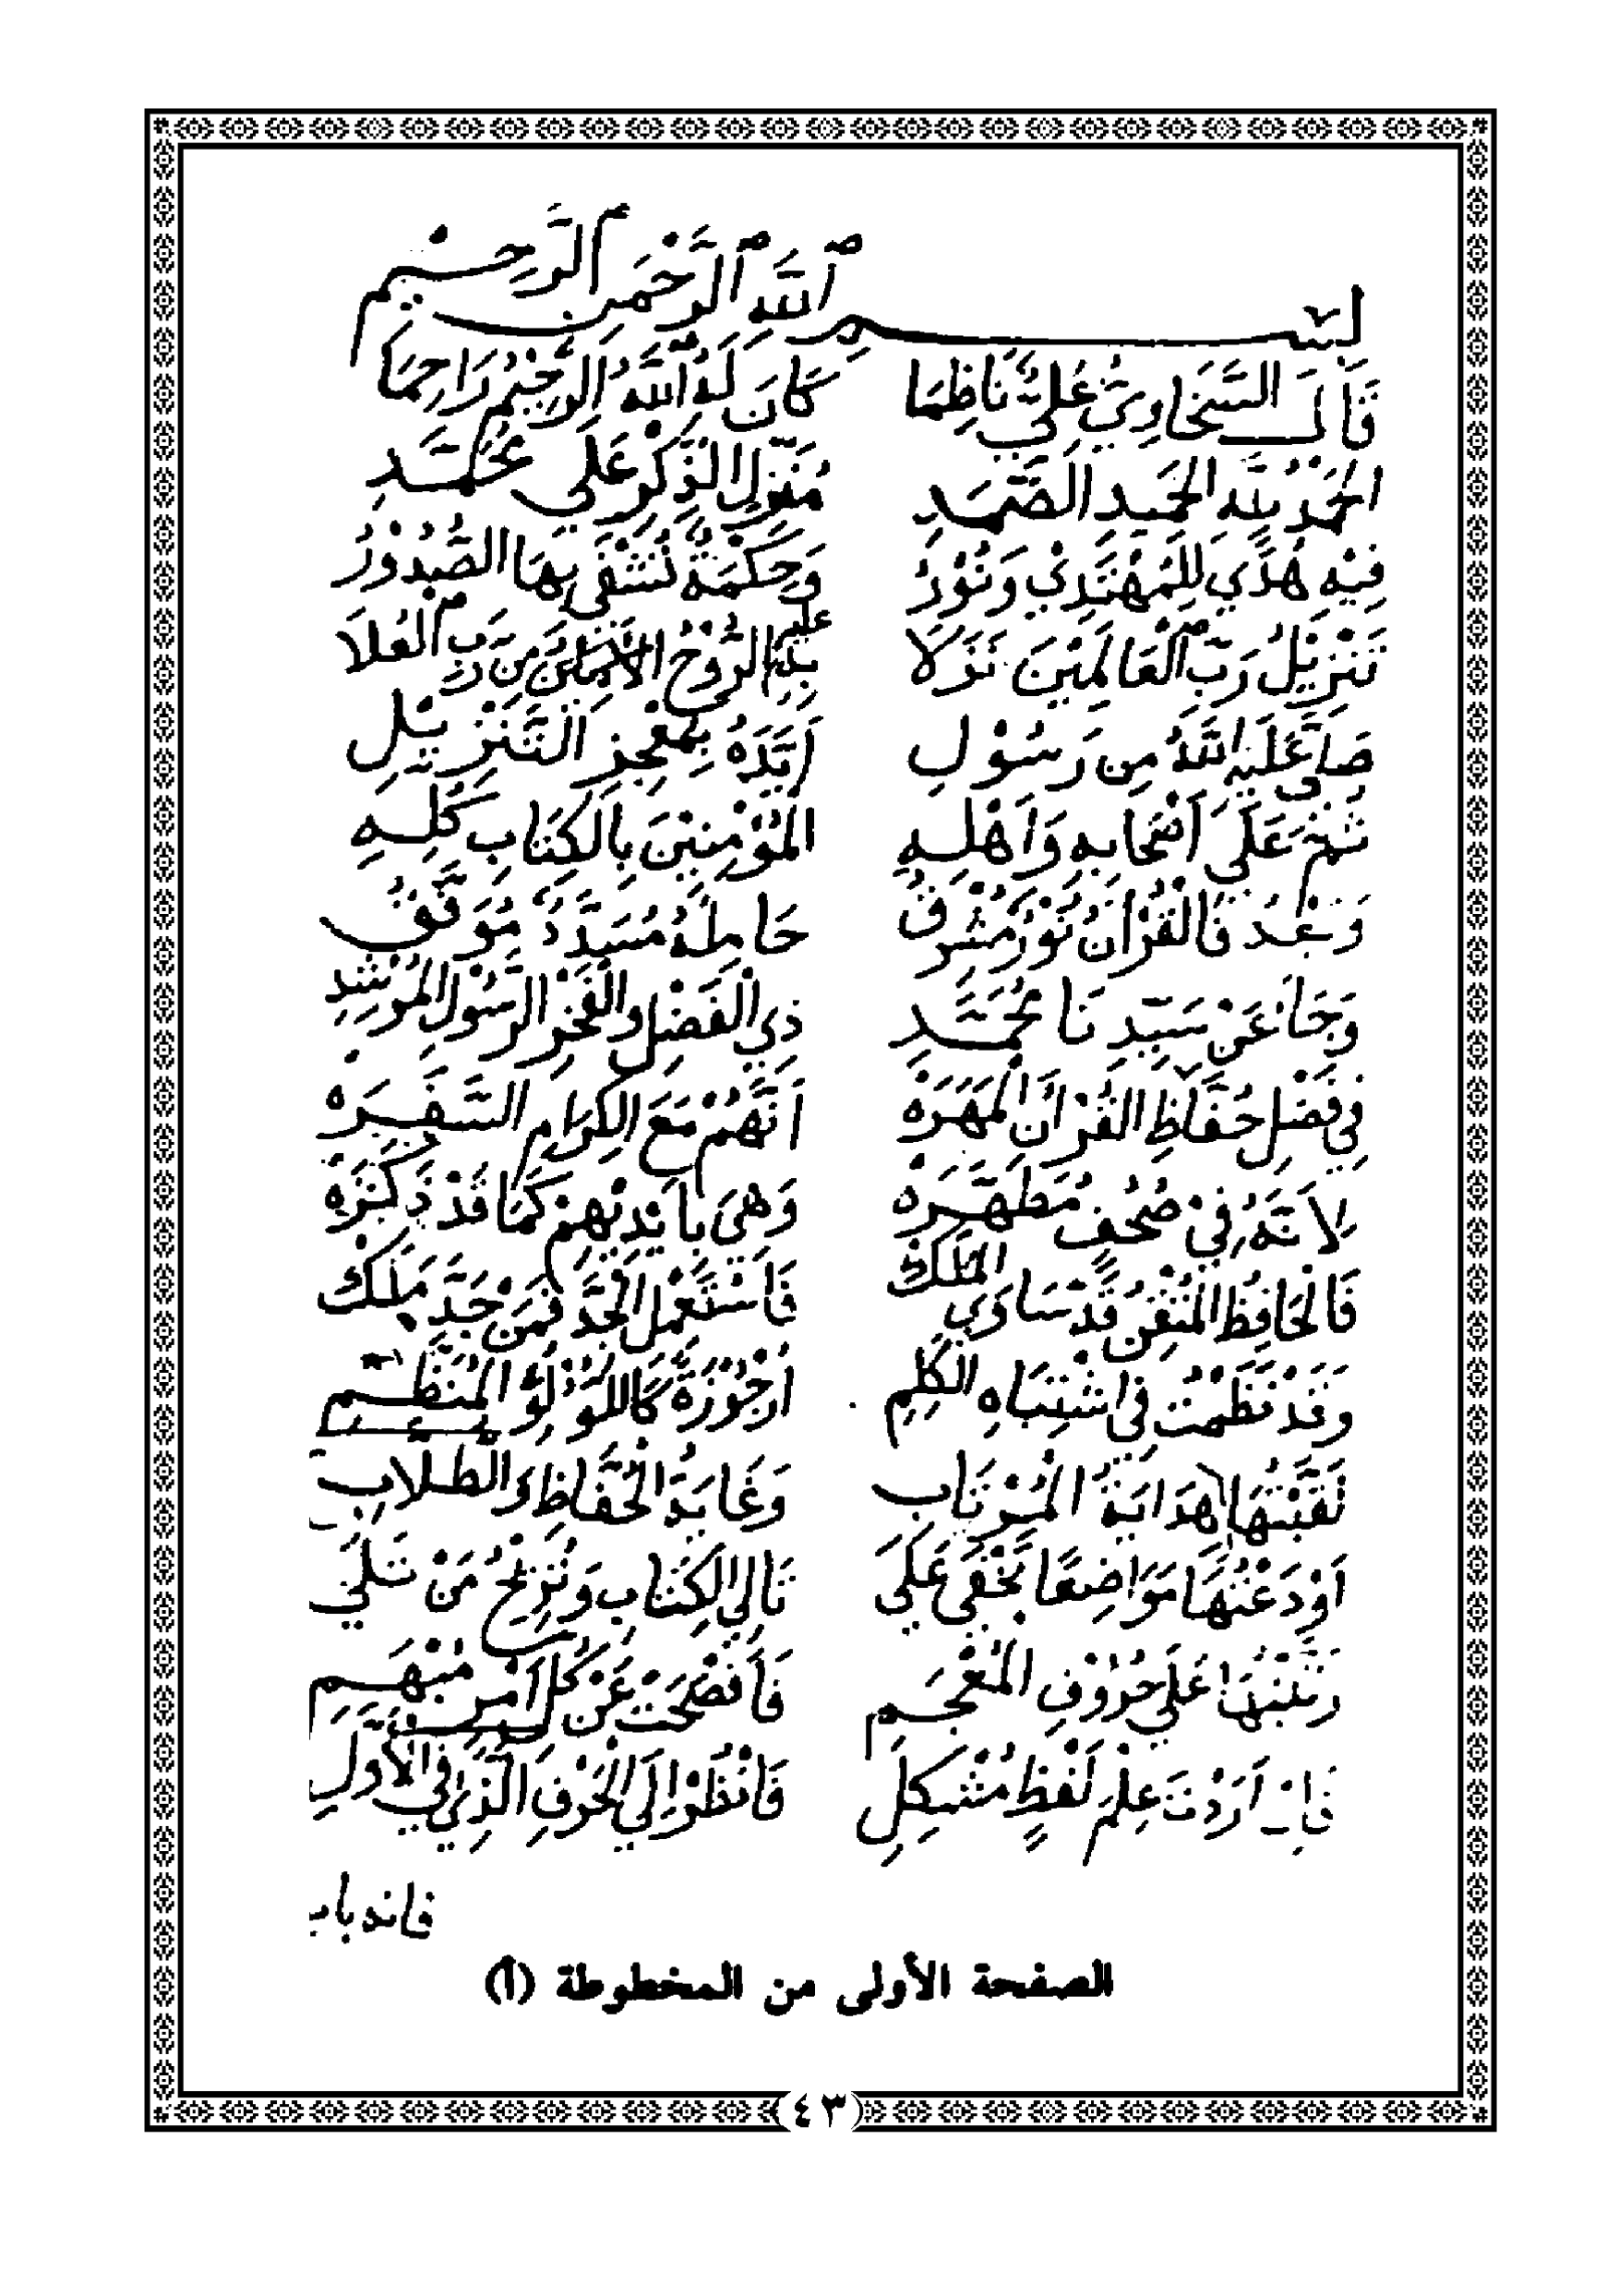 بِسْمِ ٱللَّهِ ٱلرَّحْمَنِ ٱلرَّحِيمِ
قَالَ السَّخَاوِيُّ عَلِيٌّ نَاظِمَا كَانَ لَهُ اللَّهُ الرَّحِيْمُ رَاحِمَا
الحَمْدُ لِلَّهِ الحَمِيدِ الصَّمَدِ مُنَزِّلِ الذِّكْرِ عَلَى مُحَمَّدِ
فِيْهِ هُدًى لِلْمُهْتَدِيْ وَنُوْرُ وَحِكْمَةٌ تُشْفَى بِهَا الصُّدُوْرُ
تَنْزِيْلُ رَبِّ الْعَالَمِيْنَ نَزَلَا عليه الرُّوْحُ الأَمِيْنُ مِن رَبِّ العُلَا
صَلَّى عَلَيْهِ اللَّهُ مِن رَسُوْلِ أَيَّدَهُ بِمُعْجِزِ التَّنْزِيْلِ
ثُمَّ عَلَى أَصْحَابِهِ وَأَهْلِهِ المُؤْمِنِيْنَ بِالكِتَابِ كُلِّهِ
وَبَعْدُ فَالْقُرْآنُ نُوْرٌ مُشْرِقُ حَامِلُهُ مُسَدَّدٌ مُوَفَّقُ
وَجَاءَ عَنْ سَيِّدِنَا مُحَمَّدِ ذِي الْفَضْلِ وَالْفَخْرِ الرَّسُوْلِ المُرْشِدِ
فِي فَضْلِ حُفَّاظِ القُرْآنِ الْمَهَرَهْ أَنَّهُمْ مَعَ الكِرَامِ السَّفَرَهْ
لِأَنَّهُ فِيْ صُحُفٍ مُطَهَّرَهْ وَهْيَ بِأَيْدِيْهِمْ كَمَا قَدْ ذَكَرَهْ
فَالْحَافِظُ المُتْقِنُ قَدْ سَاوَى المَلَكْ فَاسْتَعْمِلِ الْجَدَّ فَمَنْ جَدَّ مَلَكْ
وَقَدْ نَظَمْتُ فِي اشْتِبَاهِ الْكَلِمِ أُرْجُوْزَةً كَاللُّؤْلُؤِ المُنَظَّمِ
لَقَّبْتُهَا هِدَايَةَ المُرْتَابِ وَغَايَةَ الْحُفَّاظِ وَالطُّلَابِ
أَوْدَعْتُهَا مَوَاضِعًا تَخْفَى عَلَى تَالِي الكِتَابِ وَتُرِيْحُ مَنْ تَلَى
رَتَّبْتُهَا عَلَى حُرُوْفِ المُعْجَمِ فَأَفْصَحَتْ عَنْ كُلِّ أَمْرٍ مُبْهَمِ
فَإِنْ أَرَدْتَ عِلْمَ لَفْظٍ مُشْكِلِ فَانْظُرْ إِلَى الْحَرْفِ الَّذِي فِي الأَوَّلِ
فانه باب
الصفحة الأولى من المخطوطة (أ)
(٤٣)